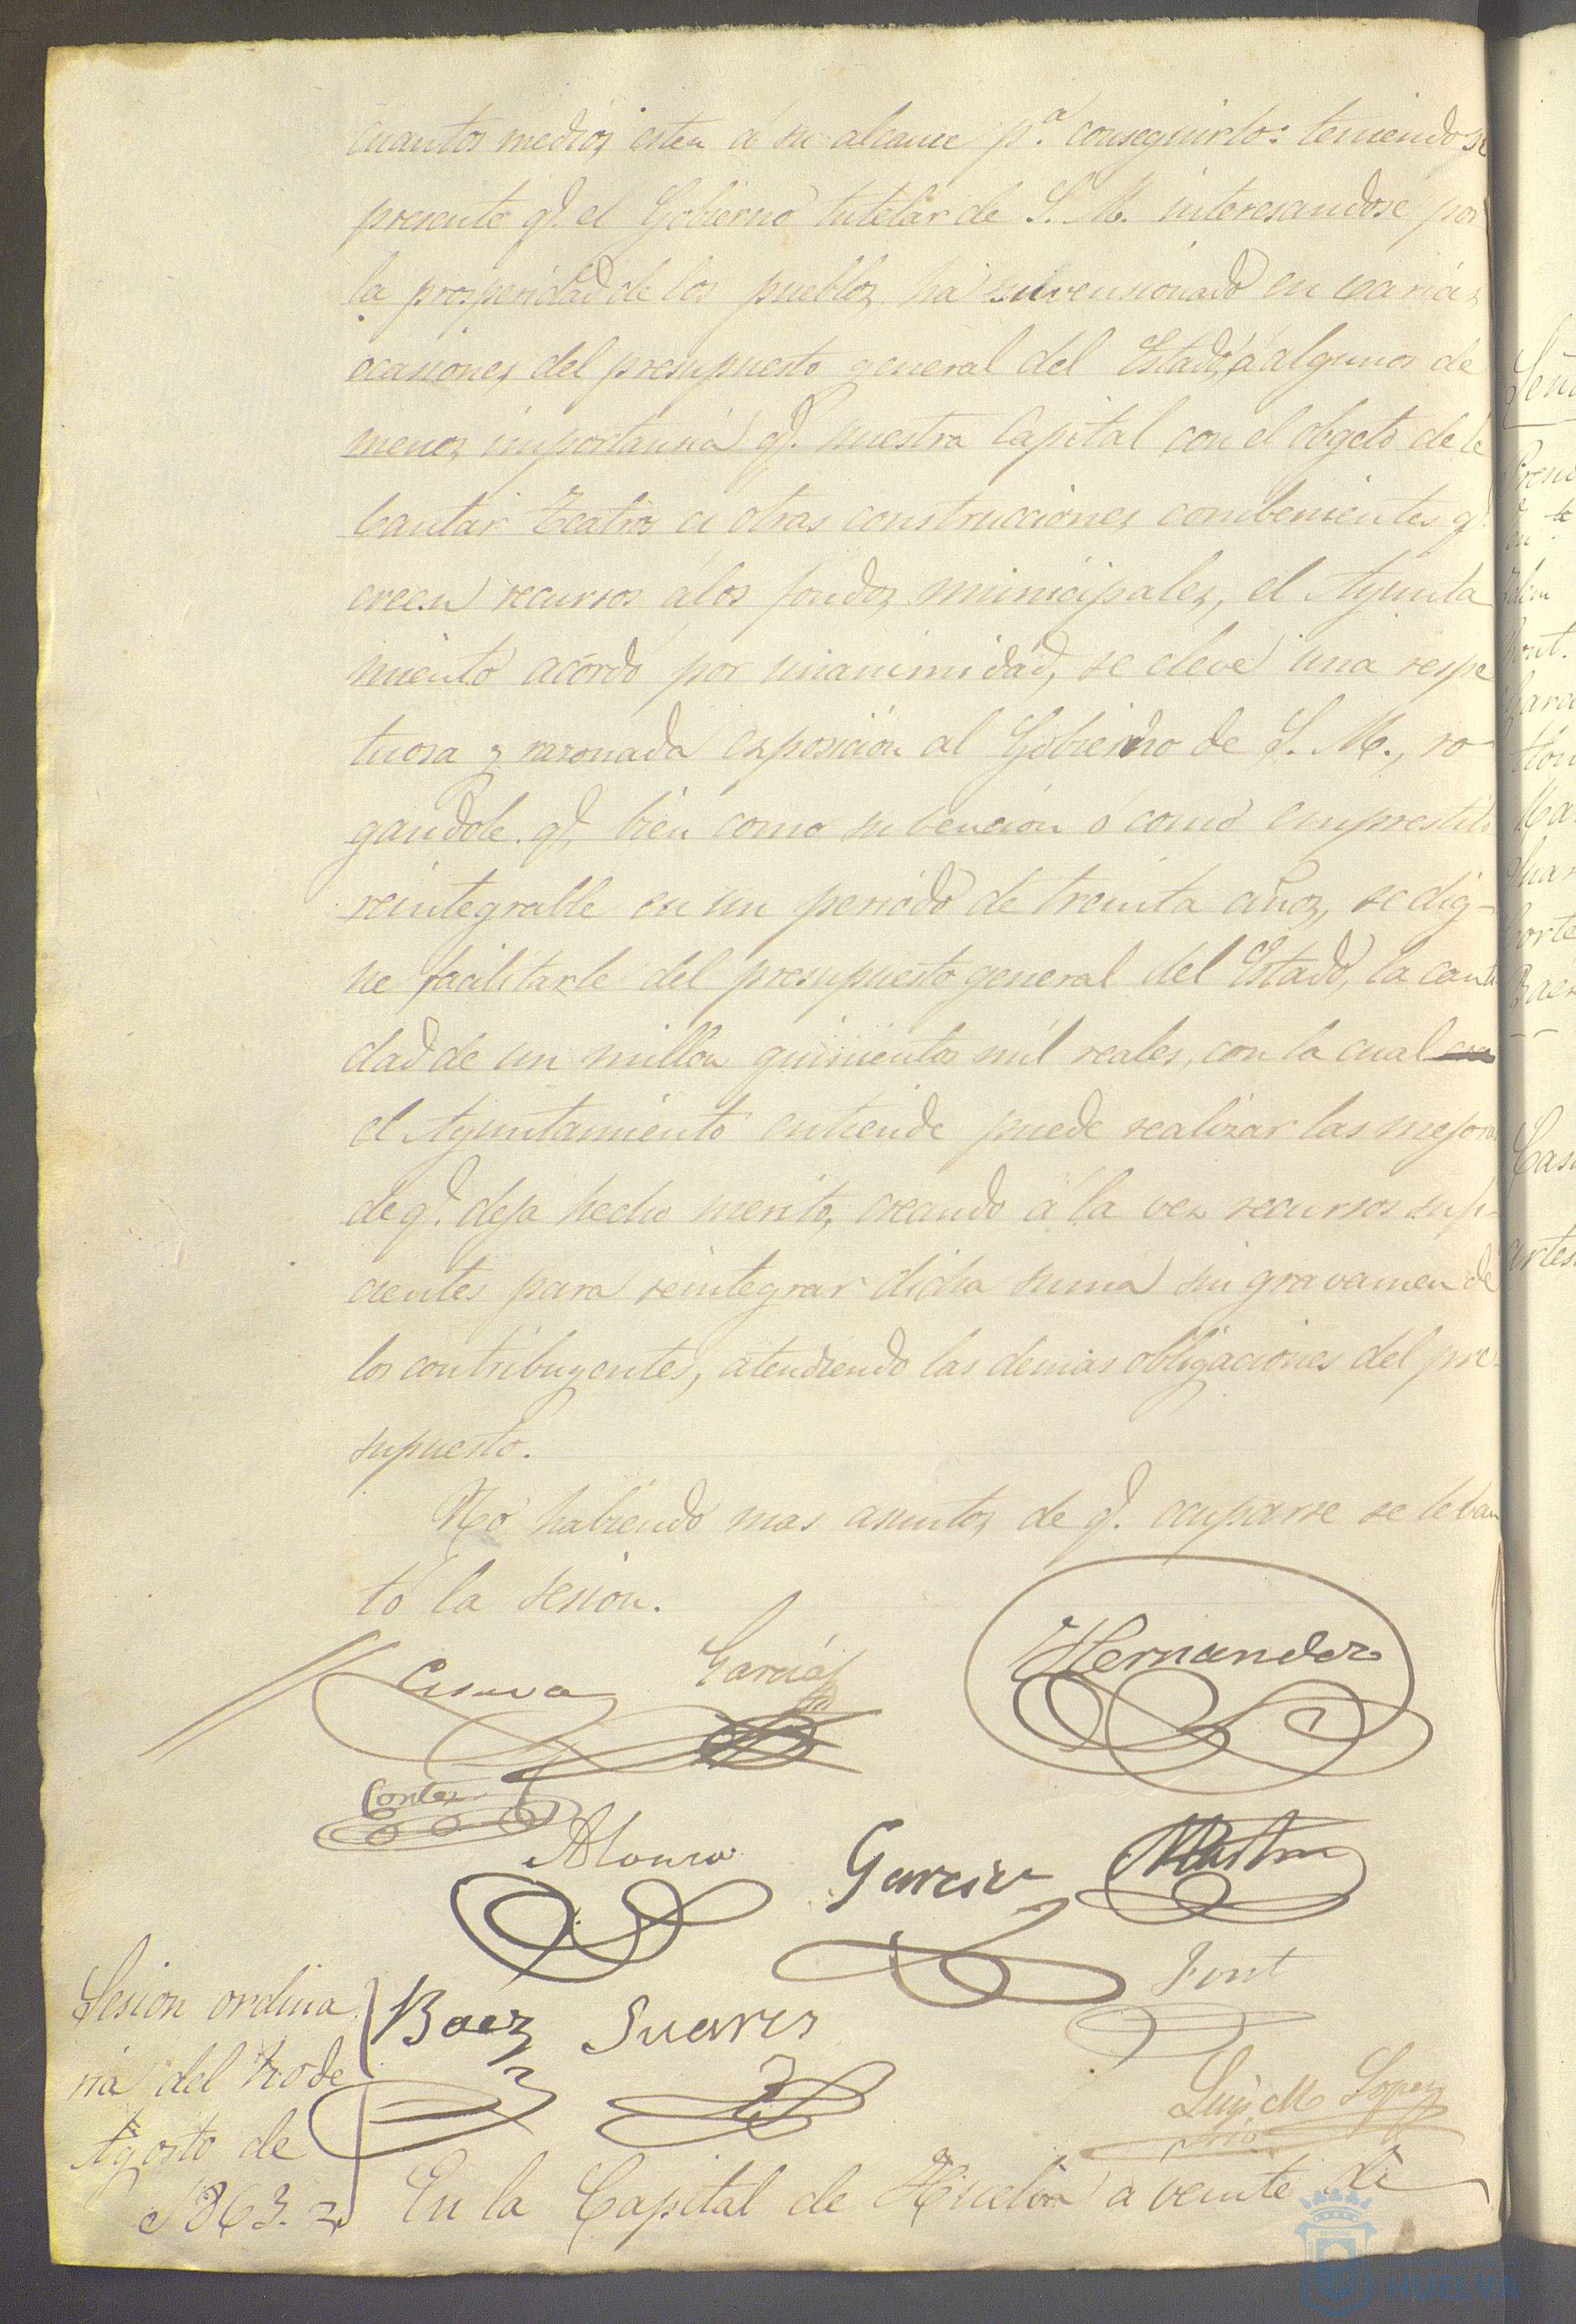 cuantos medios esten á su alcance p.ª conseguirlo: teniendose
presente q.e el Gobierno tutelar de S. M. interesandose por
la prosperidad de los pueblos, ha subvensionado en varias
ocasiones, del presupuesto general del Estado, á algunos de
menos importancia q.e nuestra Capital con el obgeto de le
bantar teatros ú otras construcciones combenientes q.e
creen recursos a los fondos municipales, el Ayunta
miento acordó por unanimidad, se eleve una respe
tuosa y razonada exposición al Gobierno de S. M., ro
gandole q.e, bien como subención ó como emprestito
reintegrable en un periodo de treinta años, se dig-
ne facilitarle del presupuesto general del Estado, la canti
dad de un millon quinientos mil reales, con la cual
el Ayuntamiento entiende puede realizar las mejoras
de q.e deja hecho merito, creando á la vez recursos sufi-
cientes para reintegrar dicha suma sin gravamen de
los contribuyentes, atendiendo las demas obligaciones del pre-
supuesto.
No habiendo mas asuntos de q.e ocuparse se leban
tó la sesion.
Garcia
Hernandez
Cortes
Alonso
Garcia
Font
Baez Suarez
Luis M Lopez
Srio
Sesion ordina
ria del 20 de
Agosto de
1863.
En la Capital de Huelva a veinte de
Seño
Baez
HUELVA